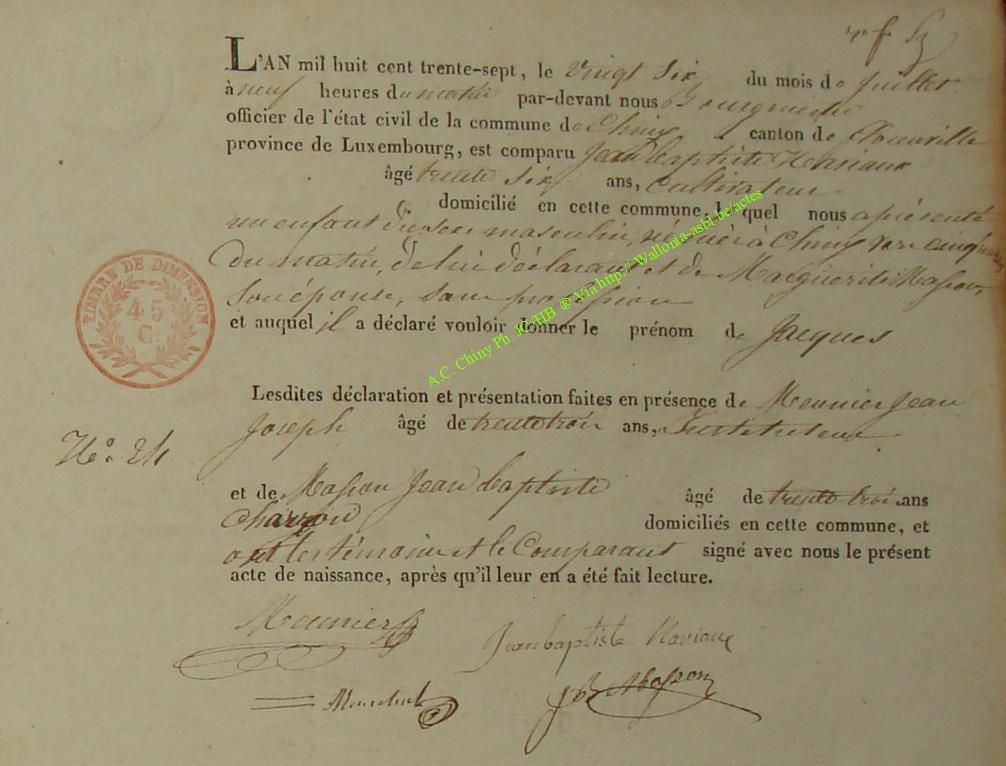 L'AN mil huit cent trente-sept, le vingt six du mois de Juillet
à neuf heures du matin par-devant nous Bourgmestre
officier de l'état civil de la commune de Chiny canton de
province de Luxembourg, est comparu Jean baptiste
âgé trente six ans, Cultivateur
domicilié en cette commune, le quel nous a présenté
un enfant du sexe masculin, né hier à Chiny vers cinq heures
Du matin, de lui déclarant et de Marguerite Masson,
son épouse, sans profession
et auquel il a déclaré vouloir donner le prénom de Jacques
Lesdites déclaration et présentation faites en présence de Meunier Jean
Joseph âgé de trente trois ans, Instituteur
N.° 24
et de Masson Jean baptiste âgé de trente trois ans
Charron domiciliés en cette commune, et
ont les témoins et le Comparant signé avec nous le présent
acte de naissance, après qu'il leur en a été fait lecture.
Meunier
Jean baptiste
JB Masson
TIMBRE DE DIMENSION
45
C.
A.C. Chiny Ph. JC/HB ® Via http:// Wallonia-asbl.be/actes